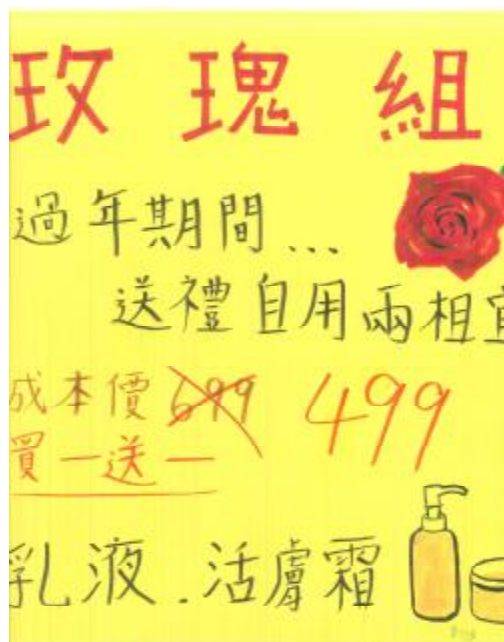 玫瑰組
過年期間...
送禮自用兩相宜
成本價 699 499
買一送一
乳液.活膚霜